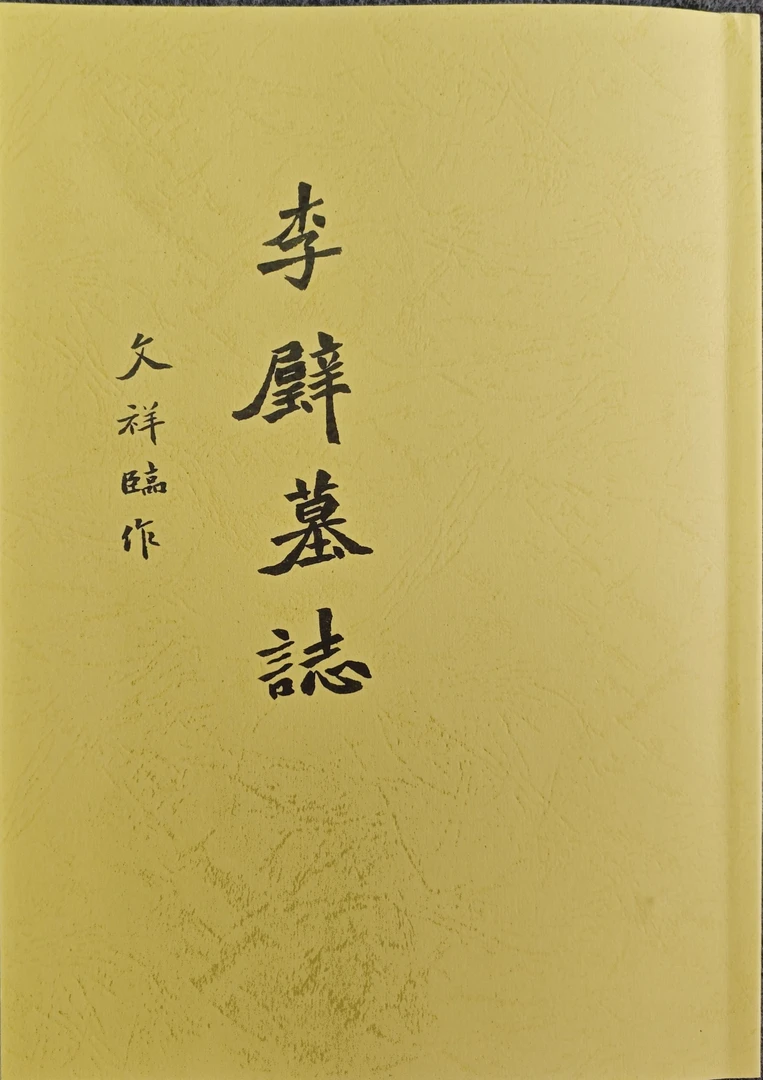 李璧墓誌
文祥臨作